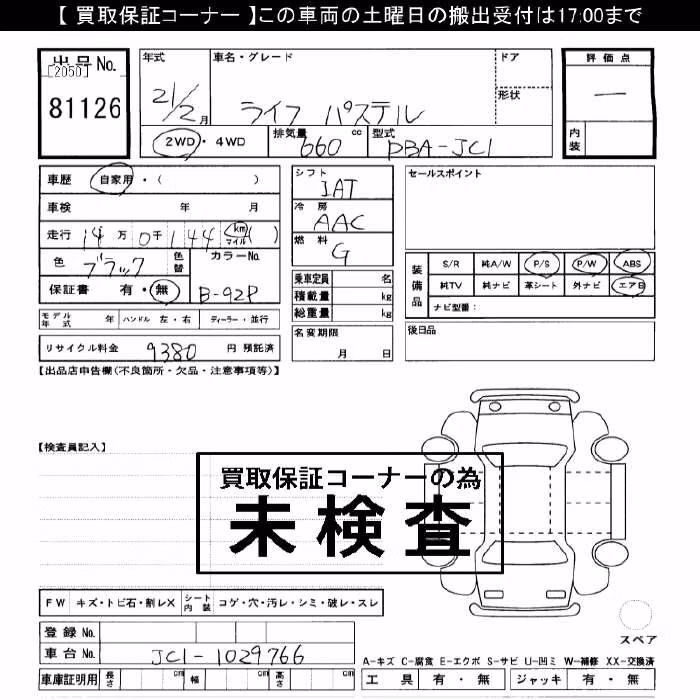 【 買取保証コーナー 】この車両の土曜日の搬出受付は17:00まで
出品No. 年式 車名・グレード ドア 評価点
[2050]
81126 21/2月 ライフ パステル 形状 一
2WD・4WD 排気量 660 cc 型式 DBA-JC1 内装
車歴 自家用・( ) シフト IAT セールスポイント
車検 年 月 冷房 AAC
走行 14万0千144 km マイル ( ) 燃料 G
色 ブラック 色替 カラーNo. B-92P
保証書 有・無
乗車定員 名
積載量 kg
総重量 kg
装備品 S/R 純A/W P/S P/W ABS
純TV 純ナビ 革シート 外ナビ エアB
ナビ型番:
モデル年式 年 ハンドル 左・右 ディーラー・並行
名変期限 月 日
後日品
リサイクル料金 9380 円 預託済
【出品店申告欄(不良箇所・欠品・注意事項等)】
【検査員記入】
買取保証コーナーの為
未検査
FW キズ・トビ石・割レX シート内装 コゲ・穴・汚レ・シミ・破レ・スレ
スペア
登録No.
車台No. JC1-1029766
A-キズ C-腐食 E-エクボ S-サビ U-凹ミ W-補修 XX-交換済
車庫証明用 長さ cm 幅 cm 高さ cm 工具 有・無 ジャッキ 有・無